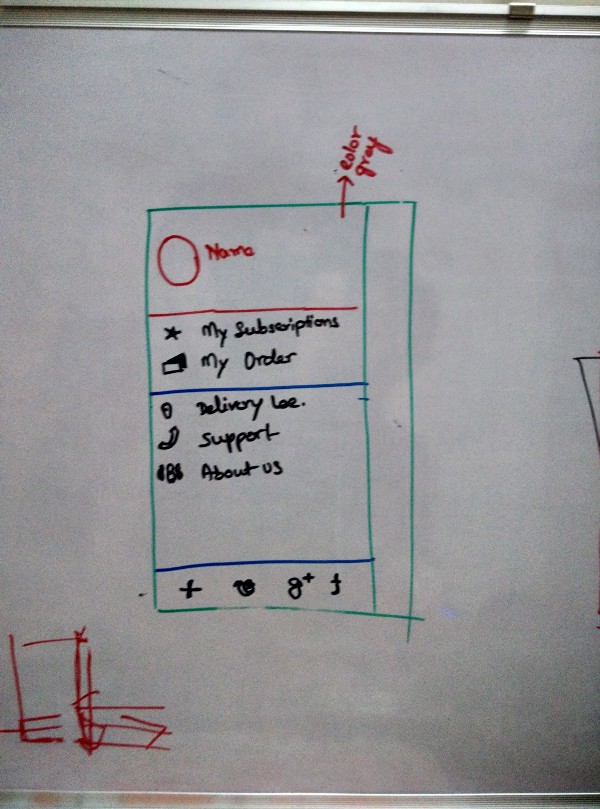 color
gray
Name
My Subscriptions
My Order
Delivery Loc.
Support
About us
g+ f